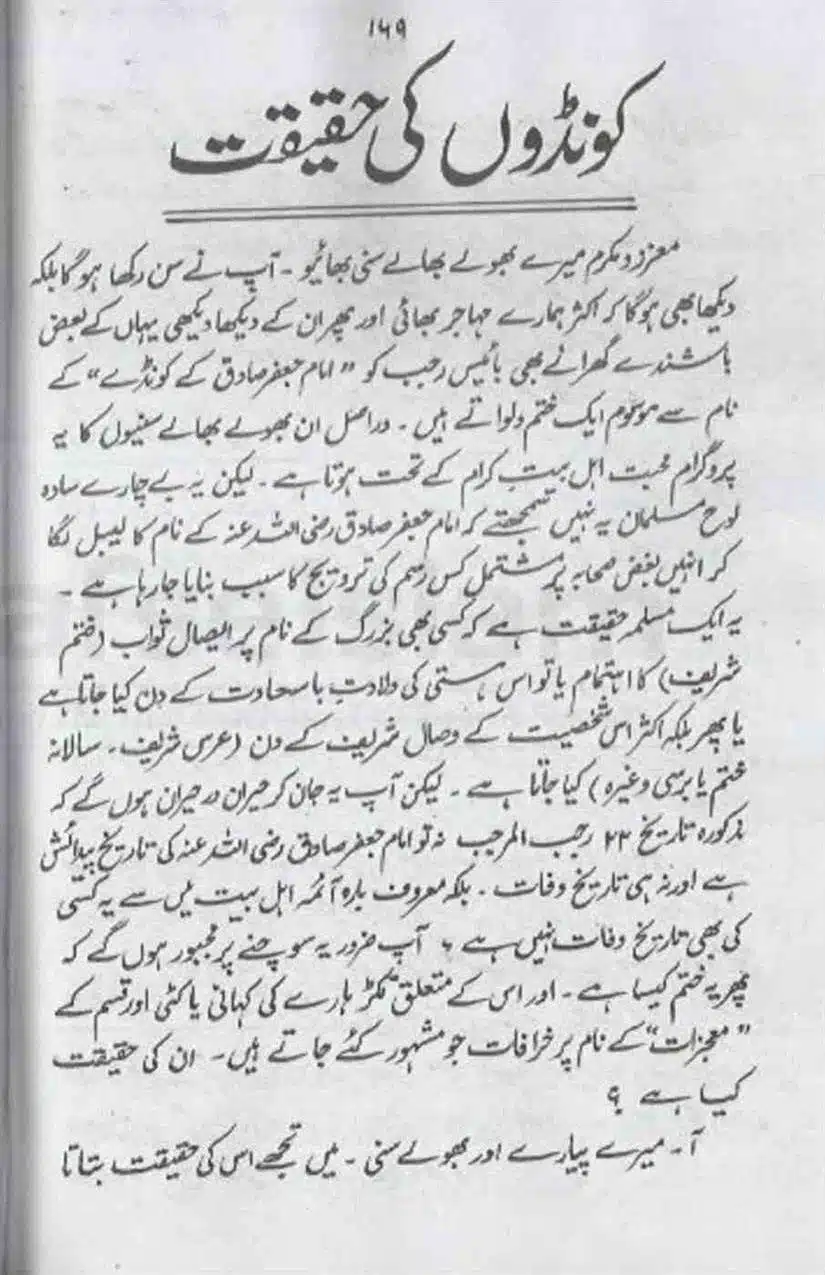 ۱۶۹
کونڈوں کی حقیقت
معزز و مکرم میرے بھولے بھالے سنی بھائیو ۔ آپ نے سن رکھا ہو گا بلکہ
دیکھا بھی ہو گا کہ اکثر ہمارے مہاجر بھائی اور پھر ان کے دیکھا دیکھی یہاں کے بعض
باشندے گھرانے بھی بائیس رجب کو "امام جعفر صادق کے کونڈے" کے
نام سے موسوم ایک ختم دلواتے ہیں ۔ دراصل ان بھولے بھالے سنیوں کا یہ
پروگرام محبت اہل بیت کرام کے تحت ہوتا ہے ۔ لیکن یہ بے چارے سادہ
لوح مسلمان یہ نہیں سمجھتے کہ امام جعفر صادق رضی اللہ عنہ کے نام کا لیبل لگا
کر انہیں بغض صحابہ پر مشتمل کس رسم کی ترویج کا سبب بنایا جا رہا ہے ۔
یہ ایک مسلمہ حقیقت ہے کہ کسی بھی بزرگ کے نام پر ایصال ثواب (ختم
شریف) کا اہتمام یا تو اس ہستی کی ولادت باسعادت کے دن کیا جاتا ہے
یا پھر بلکہ اکثر اس شخصیت کے وصال شریف کے دن (عرس شریف ۔ سالانہ
ختم یا برسی وغیرہ) کیا جاتا ہے ۔ لیکن آپ یہ جان کر حیران در حیران ہوں گے کہ
مذکورہ تاریخ ۲۲ رجب المرجب نہ تو امام جعفر صادق رضی اللہ عنہ کی تاریخ پیدائش
ہے اور نہ ہی تاریخ وفات ۔ بلکہ معروف بارہ آئمہ اہل بیت میں سے یہ کسی
کی بھی تاریخ وفات نہیں ہے ، آپ ضرور یہ سوچنے پر مجبور ہوں گے کہ
پھر یہ ختم کیسا ہے ۔ اور اس کے متعلق لکڑ ہارے کی کہانی یا کئی اور قسم کے
"معجزات" کے نام پر خرافات جو مشہور کئے جاتے ہیں ۔ ان کی حقیقت
کیا ہے ؟
آ ۔ میرے پیارے اور بھولے سنی ۔ میں تجھے اس کی حقیقت بتاتا